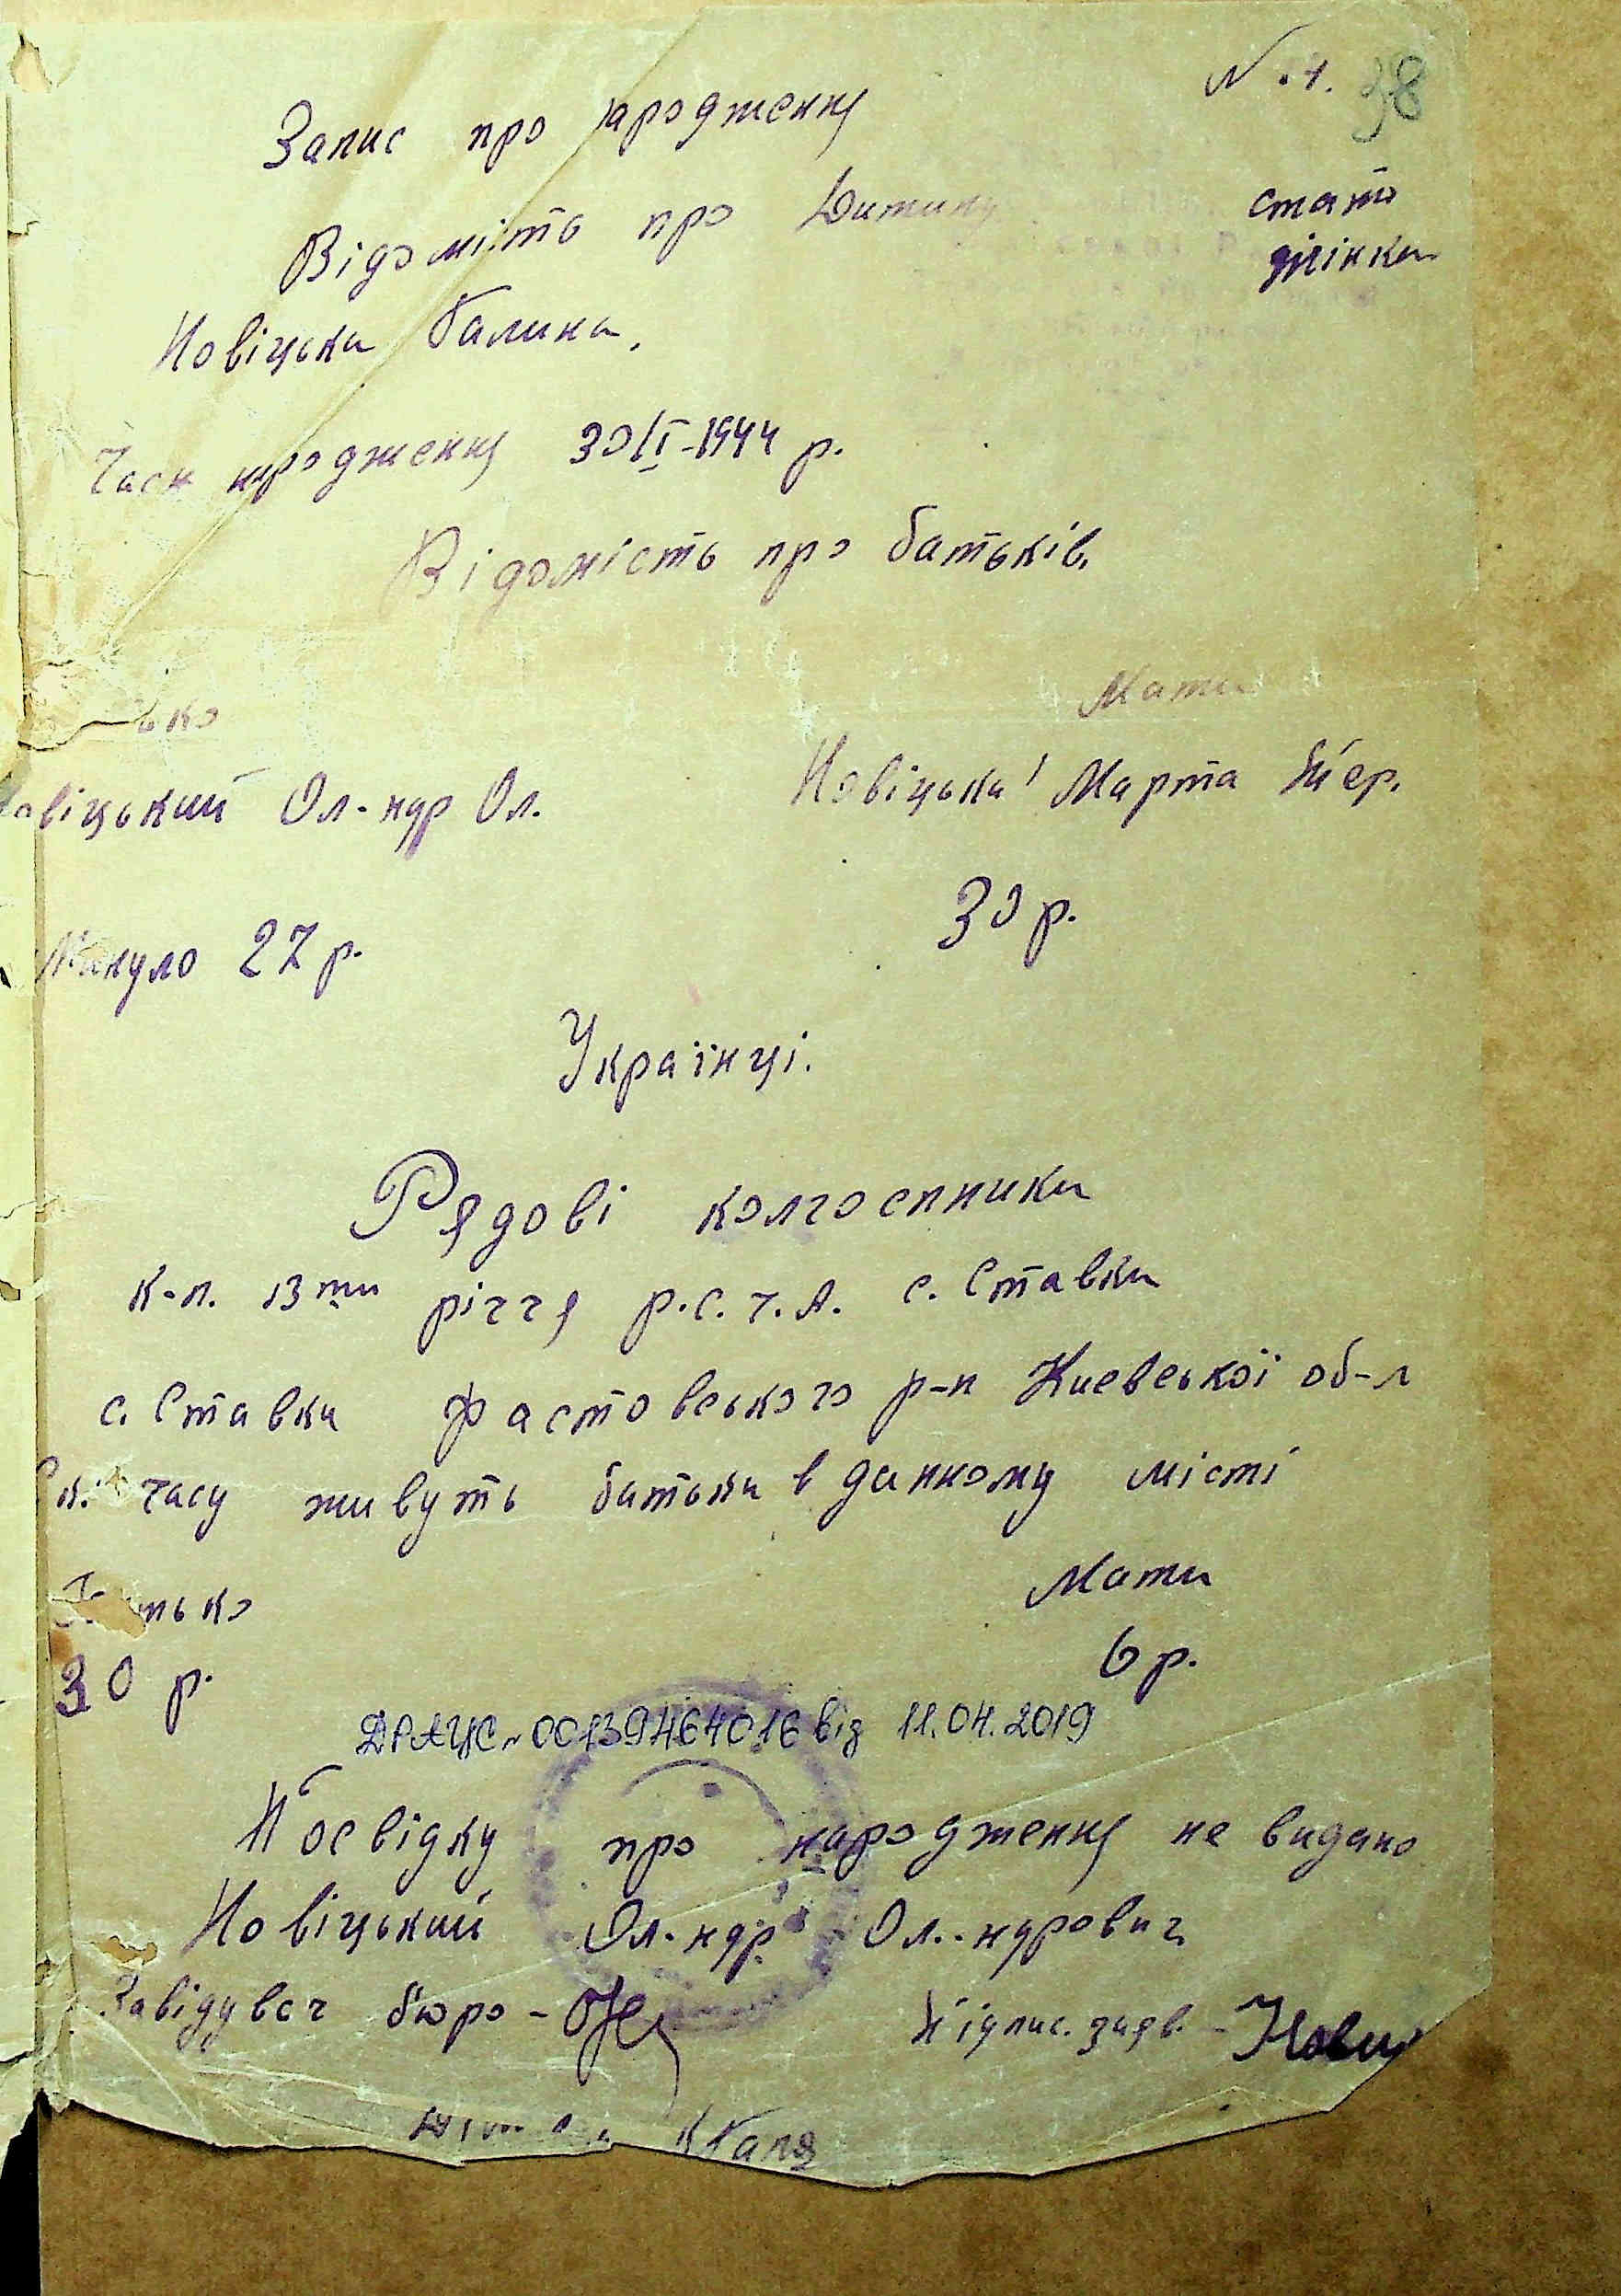 N. 4. 38
Запис про народження
Відомість про Дитину
стать
дівчинка
Новіцька Галина.
Часи народження 30/I-1944 р.
Відомість про батьків.
ько Мати
овіцький Ол-ндр Ол. Новіцька Марта
Минуло 27 р. 30 р.
Українці.
Рядові колгоспники
к-п. 13ти річчя р.с.ч.А. с. Ставки
с. Ставки Фастовського р-н Киевської об-л
часу живуть батьки в данному місті
Батько Мати
30 р. 6 р.
ДРАЦС № 00139464016 від 11.04.2019
Посвідку про народження не видано
Новіцький Ол-ндр Ол.-ндрович
Завідувач бюро - Підпис. заяв. - Новиц